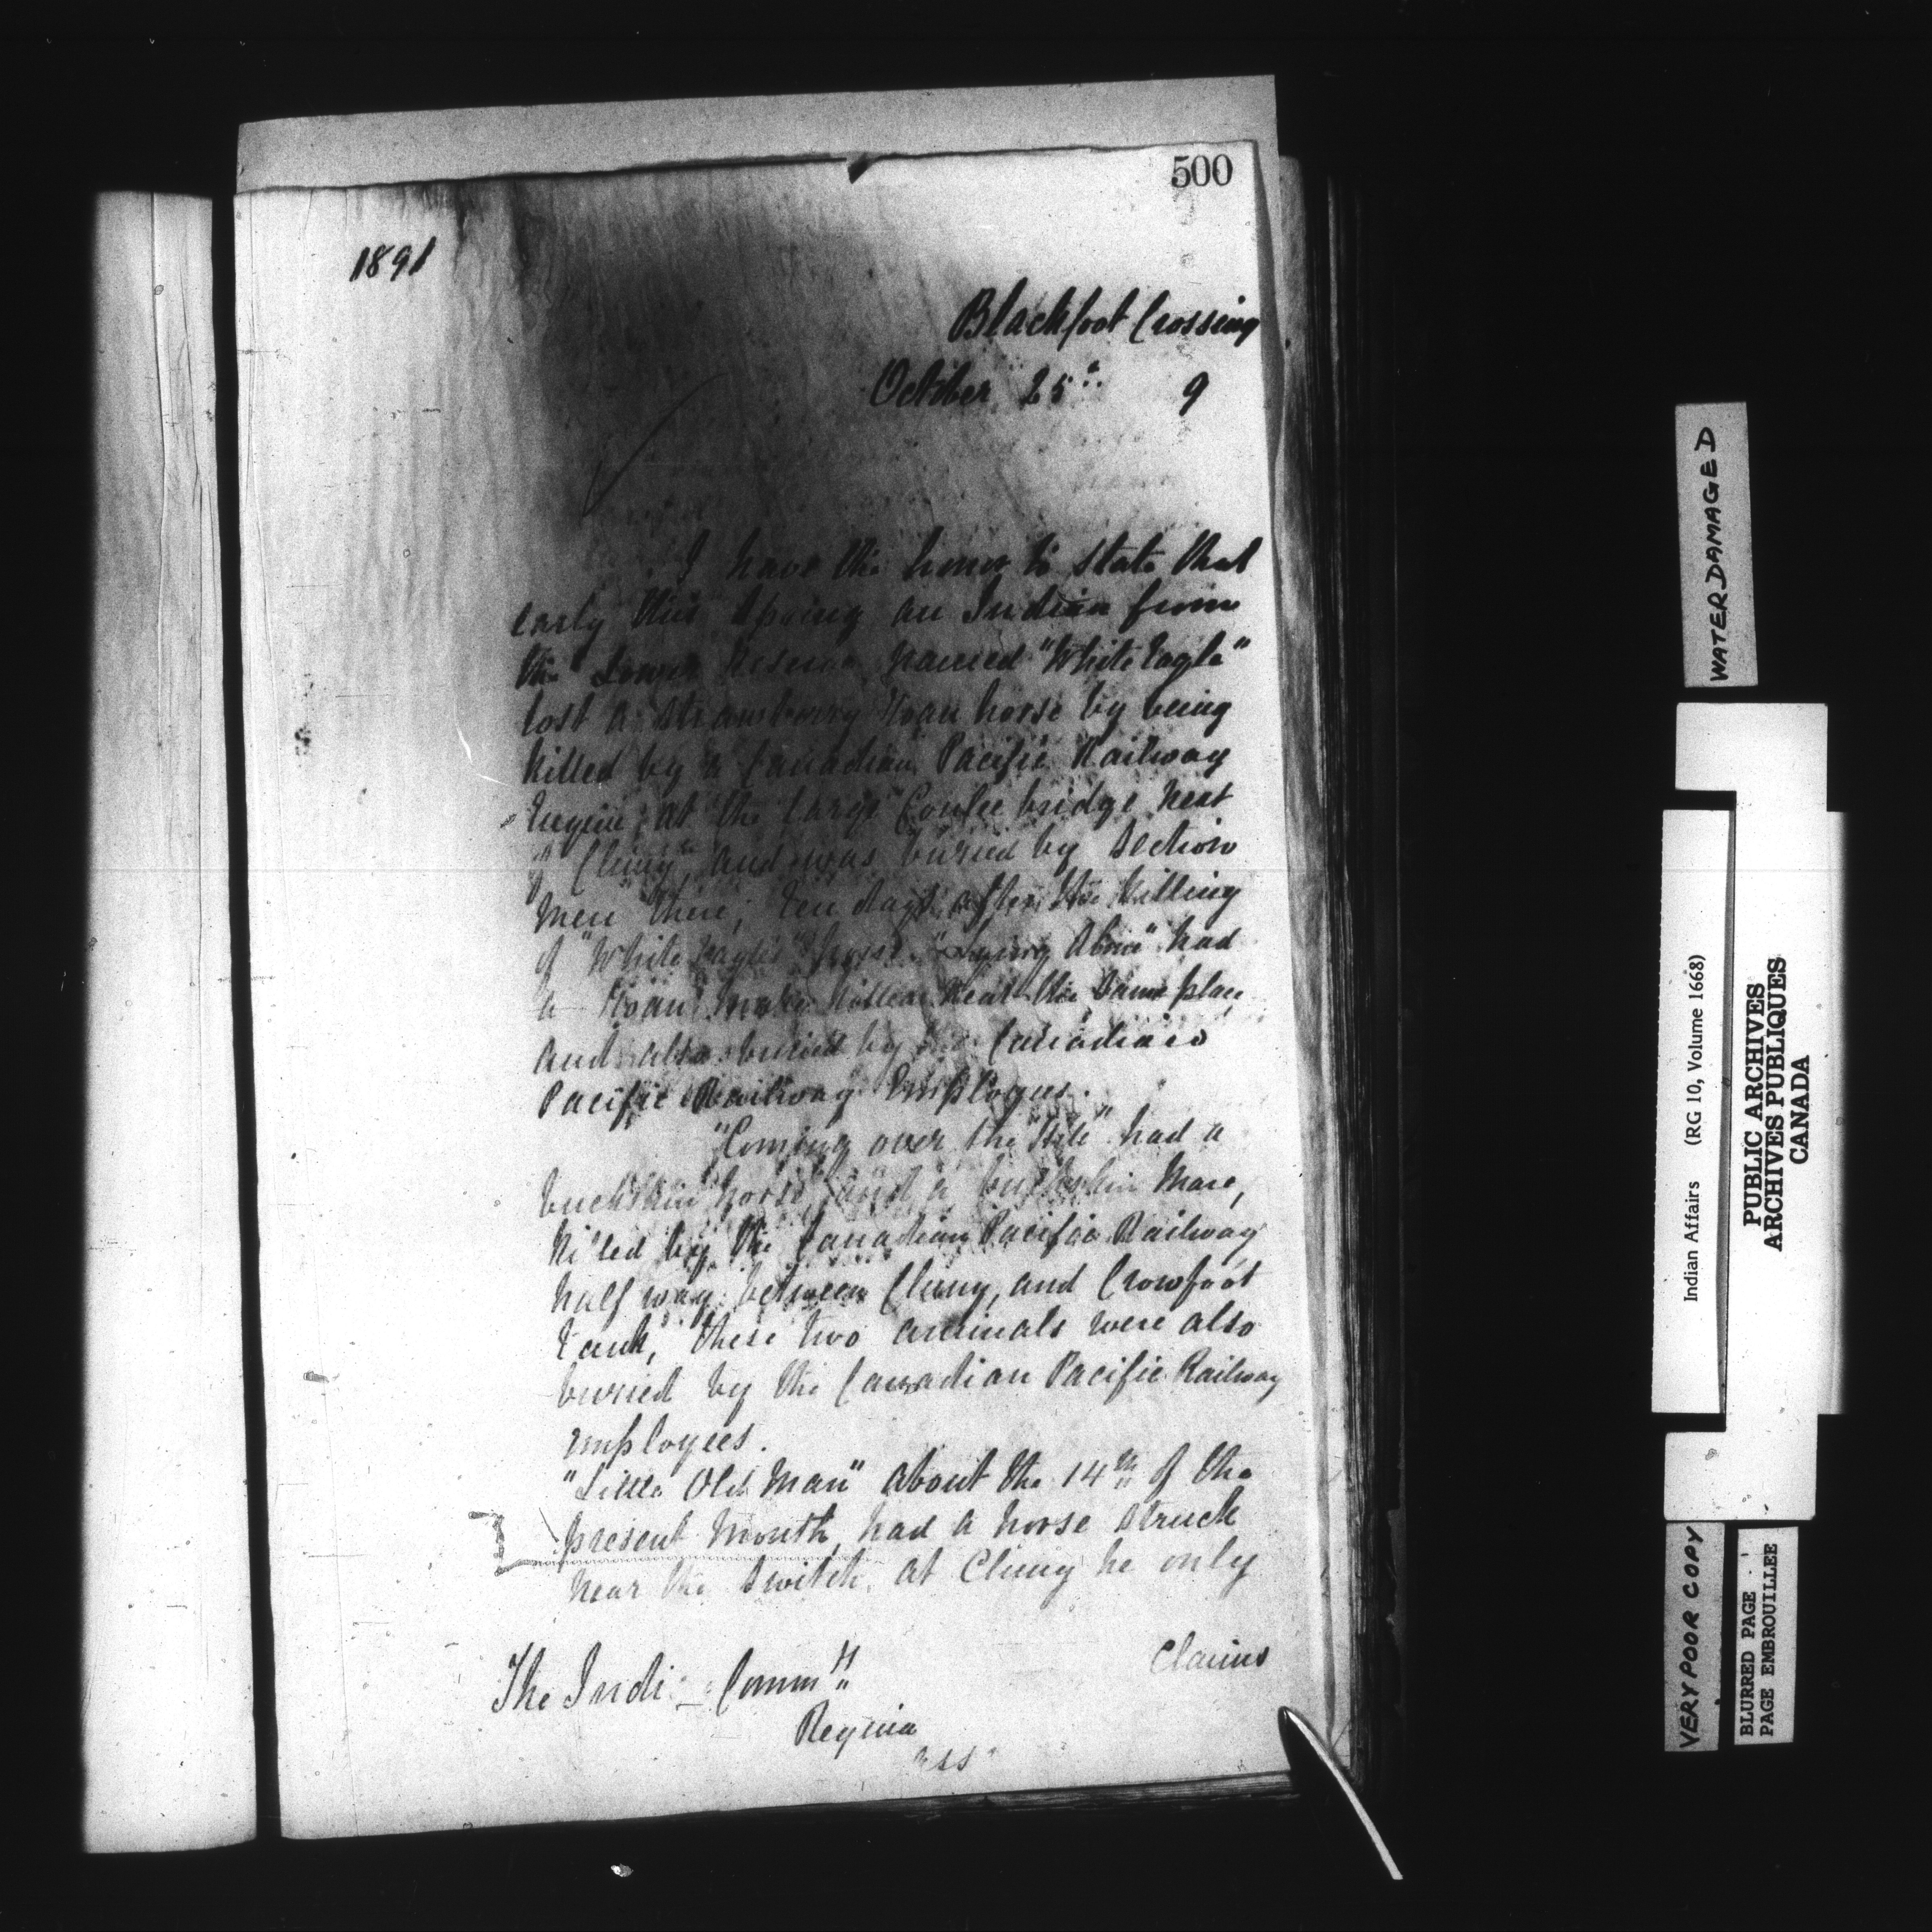 500
1891
Blackfoot Crossing
October 25th 9
I have the honor to state that
early this Spring an Indian from
the Lower Reserve named "White Eagle"
lost a strawberry Roan horse by being
killed by a Canadian Pacific Railway
Engine, at the large Coulee bridge near
"Cluny" and was buried by section
men there; ten days after the killing
of "White Eagles" horse. had
a Roan killed near the same place
and also buried by the Canadian
Pacific Railway Employees.
"Coming over the Hill" had a
buckskin horse, and a buckskin Mare,
killed by the Canadian Pacific Railway
half way between Cluny, and Crowfoot
tank, these two animals were also
buried by the Canadian Pacific Railway
employees.
"Little Old Man" about the 14th of the
present month, had a horse struck
near the switch at Cluny he only
claims
The Indi Commr
Regina
WATER DAMAGED
Indian Affairs (RG 10, Volume 1668)
PUBLIC ARCHIVES
ARCHIVES PUBLIQUES
CANADA
VERY POOR COPY
BLURRED PAGE
PAGE EMBROUILLEE